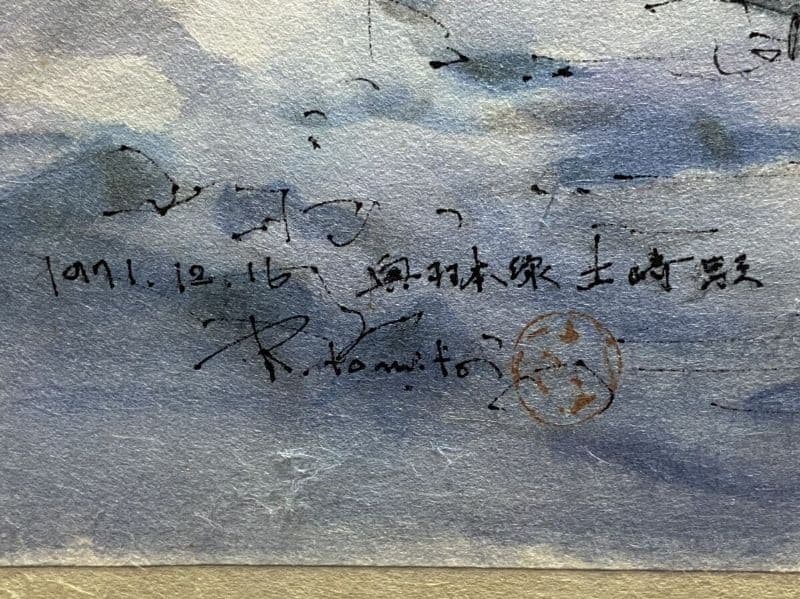 1971.12.16 奥羽本線 土崎駅
R. tomita